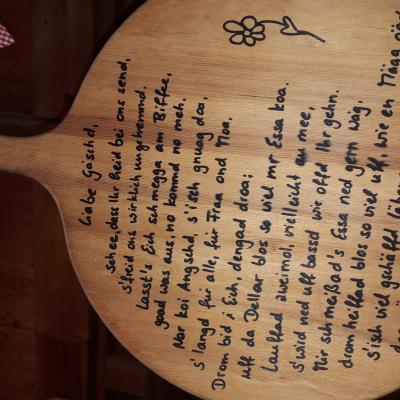 Liabe Gäschd,
schee, dass Ihr heid bei ons send,
s'freid ons wirklich ungehemmd.
Lasst's Eich schmegga am Biffee,
goad was aus, no kommd no meh.
Nar koi Angschd, s'isch gnuag doa,
s'langd für alle, für Fraa ond Moa.
Drom bid i Eich, dengad droa:
uff da Dellar blos so viel mr Essa koa.
Laufad zweimol, vielleicht au mee,
s'wird ned uffbassd wie offd Ihr gehn.
Mir schmeißad's Essa ned gern wäg,
drom heiffard blos so viel uff, wie en Maga
s'isch viel gschäffd